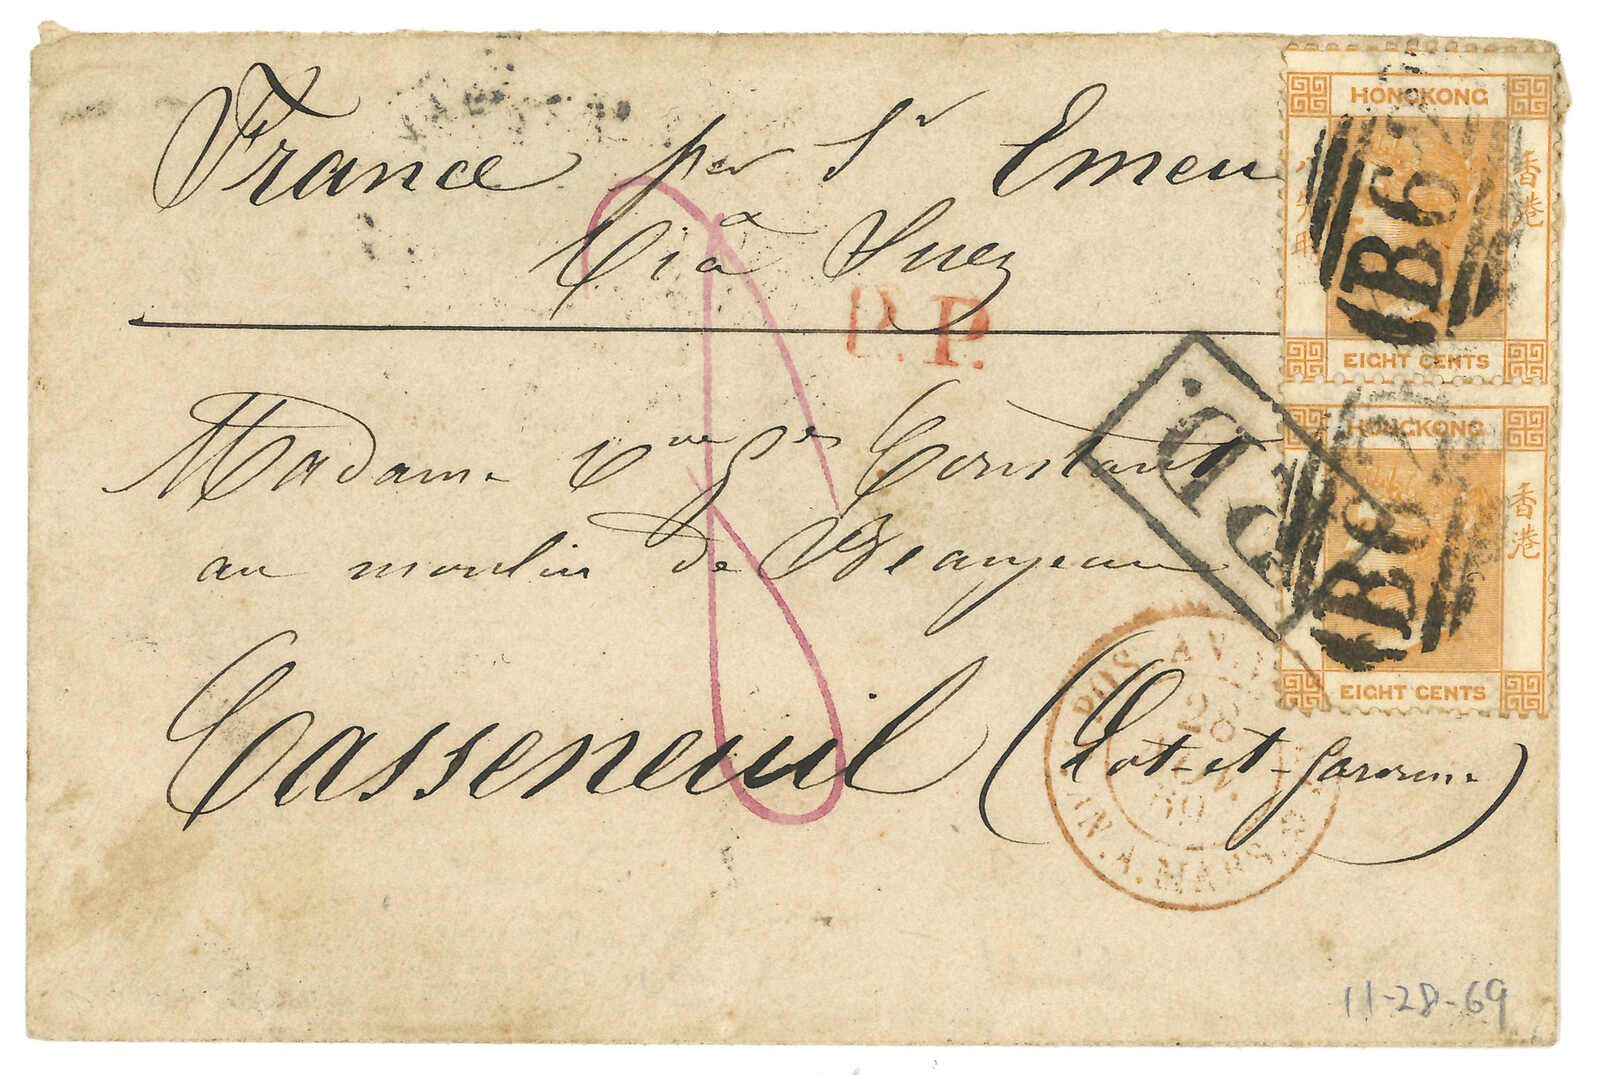 France per Sr Emeu
viâ Suez
P.P.
Madame Vve Jn Constant
au moulin de Beaujeau
Casseneuil (Lot-et-Garonne)
HONGKONG
香港
B62
EIGHT CENTS
P.D.
HONGKONG
香港
B62
EIGHT CENTS
POS. AV.
28
69
MARS.
11-28-69